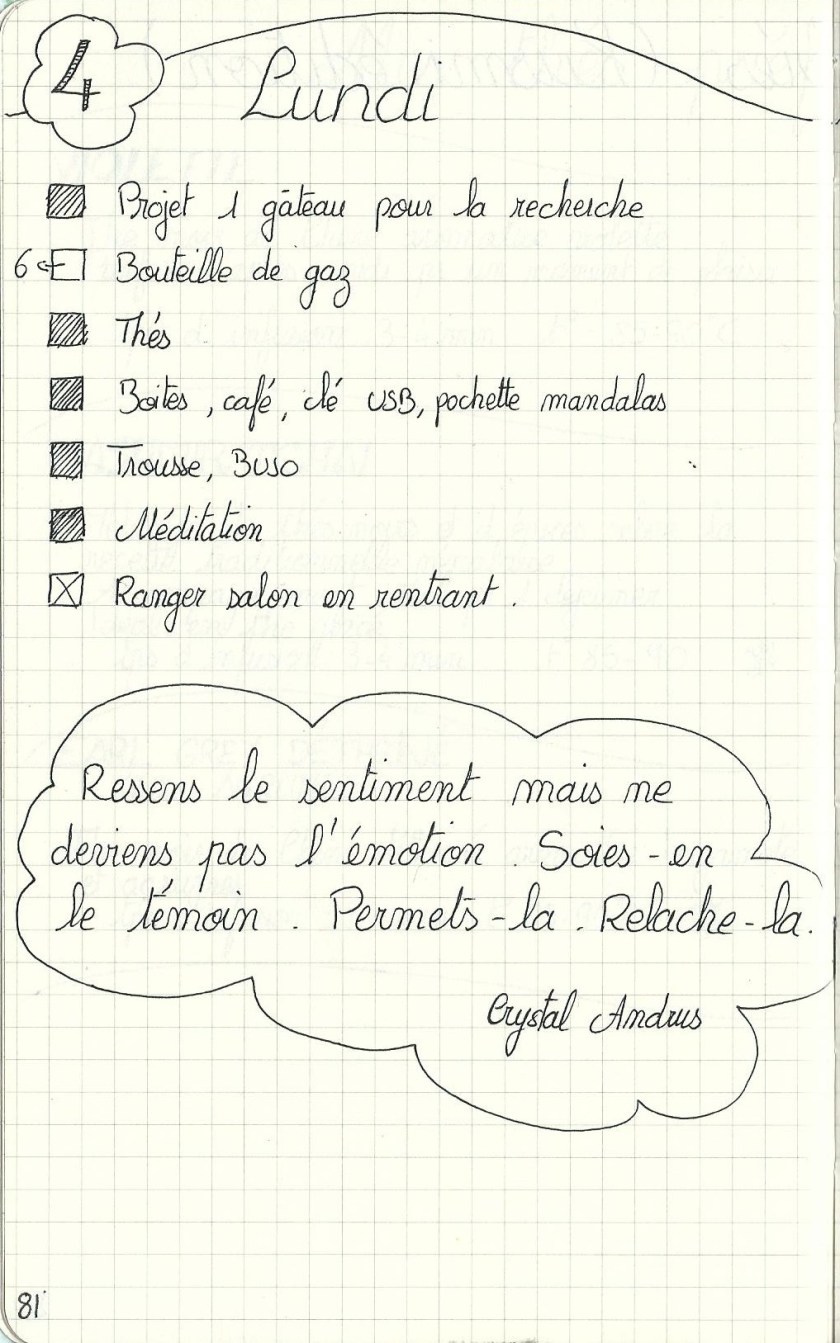 4 Lundi
Projet 1 gâteau pour la recherche
6 Bouteille de gaz
Thés
Boites, café, clé USB, pochette mandalas
Trousse, BUSO
Méditation
Ranger salon en rentrant.
Ressens le sentiment mais ne
deviens pas l'émotion. Soies-en
le témoin. Permets-la. Relache-la.
Crystal Andrus
81